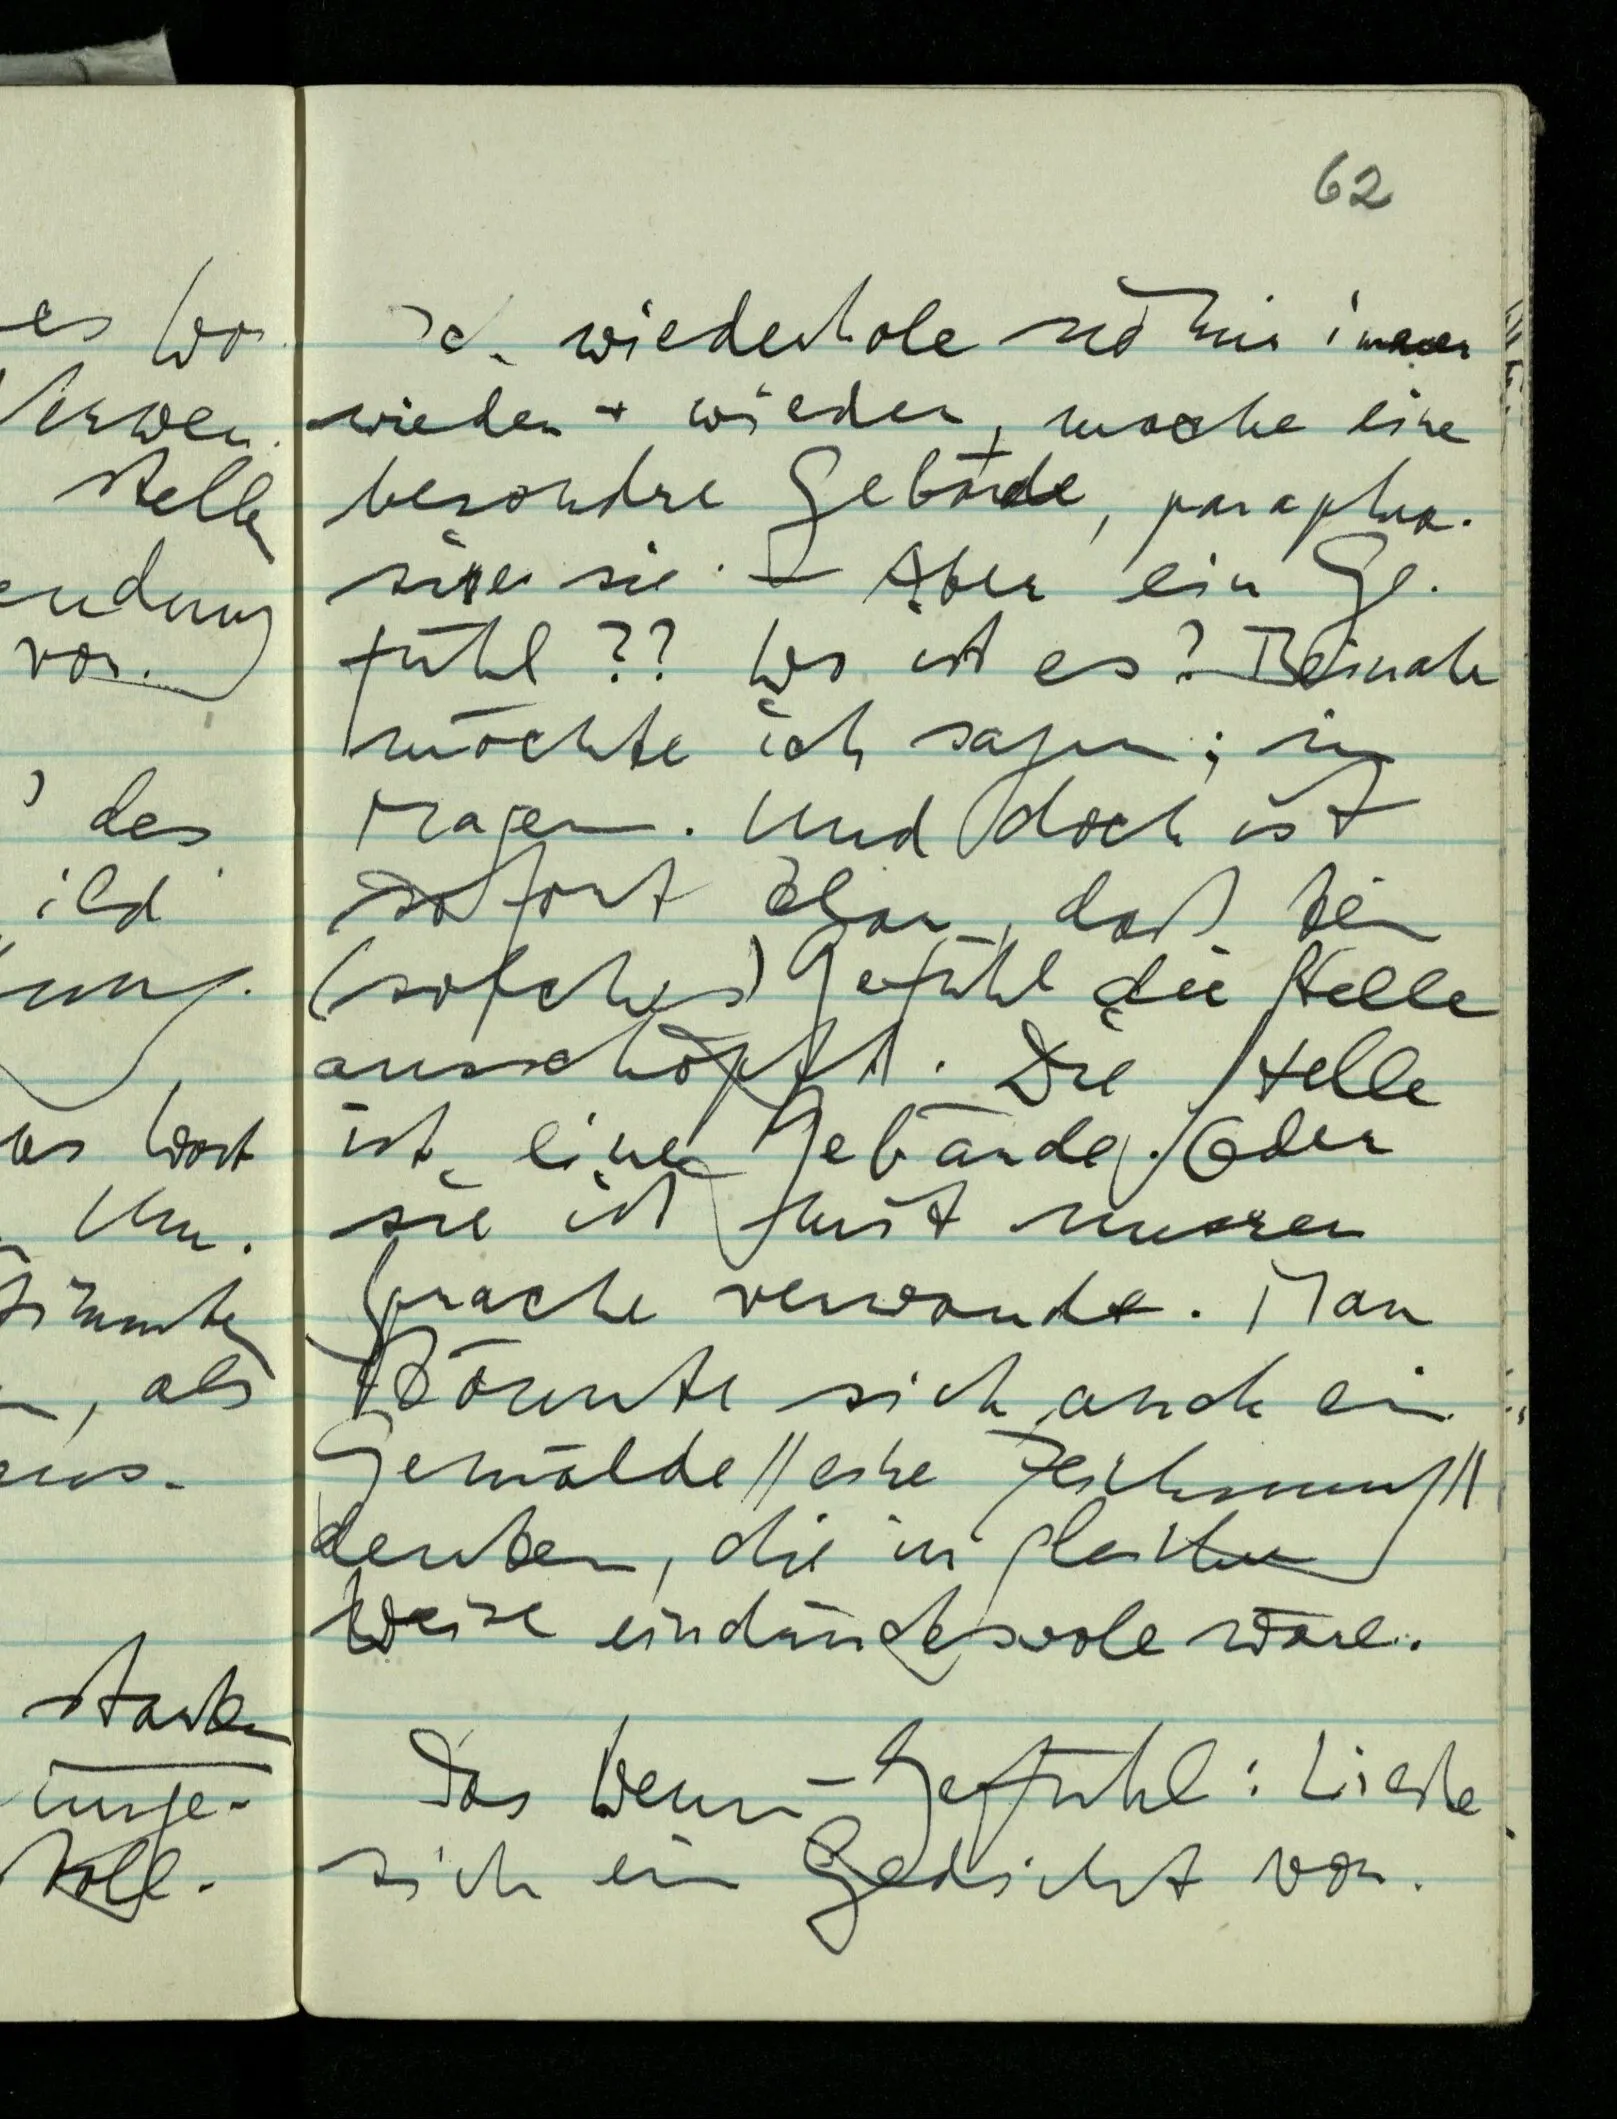 es Wo
Verwen.
Stelle
endung
vor.
des
ild
ung.
es Wort
Un.
stimmte
, als
aus.
starken
unge-
voll.
62
Ich wiederhole sie mir immer
wieder + wieder, mache eine
besondre Gebärde, paraphra-
siere sie. – Aber ein Ge-
fühl?? Wo ist es? Beinahe
möchte ich sagen: im
Magen. Und doch ist
sofort klar, daß kein
(solches) Gefühl die Stelle
ausschöpft. Die Stelle
ist eine Gebärde. Oder
sie ist mit unsrer
Sprache verwandt. Man
könnte sich auch ein
Gemälde // eine Zeichnung //
denken, die in gleicher
Weise eindrucksvoll wäre.
Das Wenn-Gefühl: Liest
sich ein Gedicht vor.